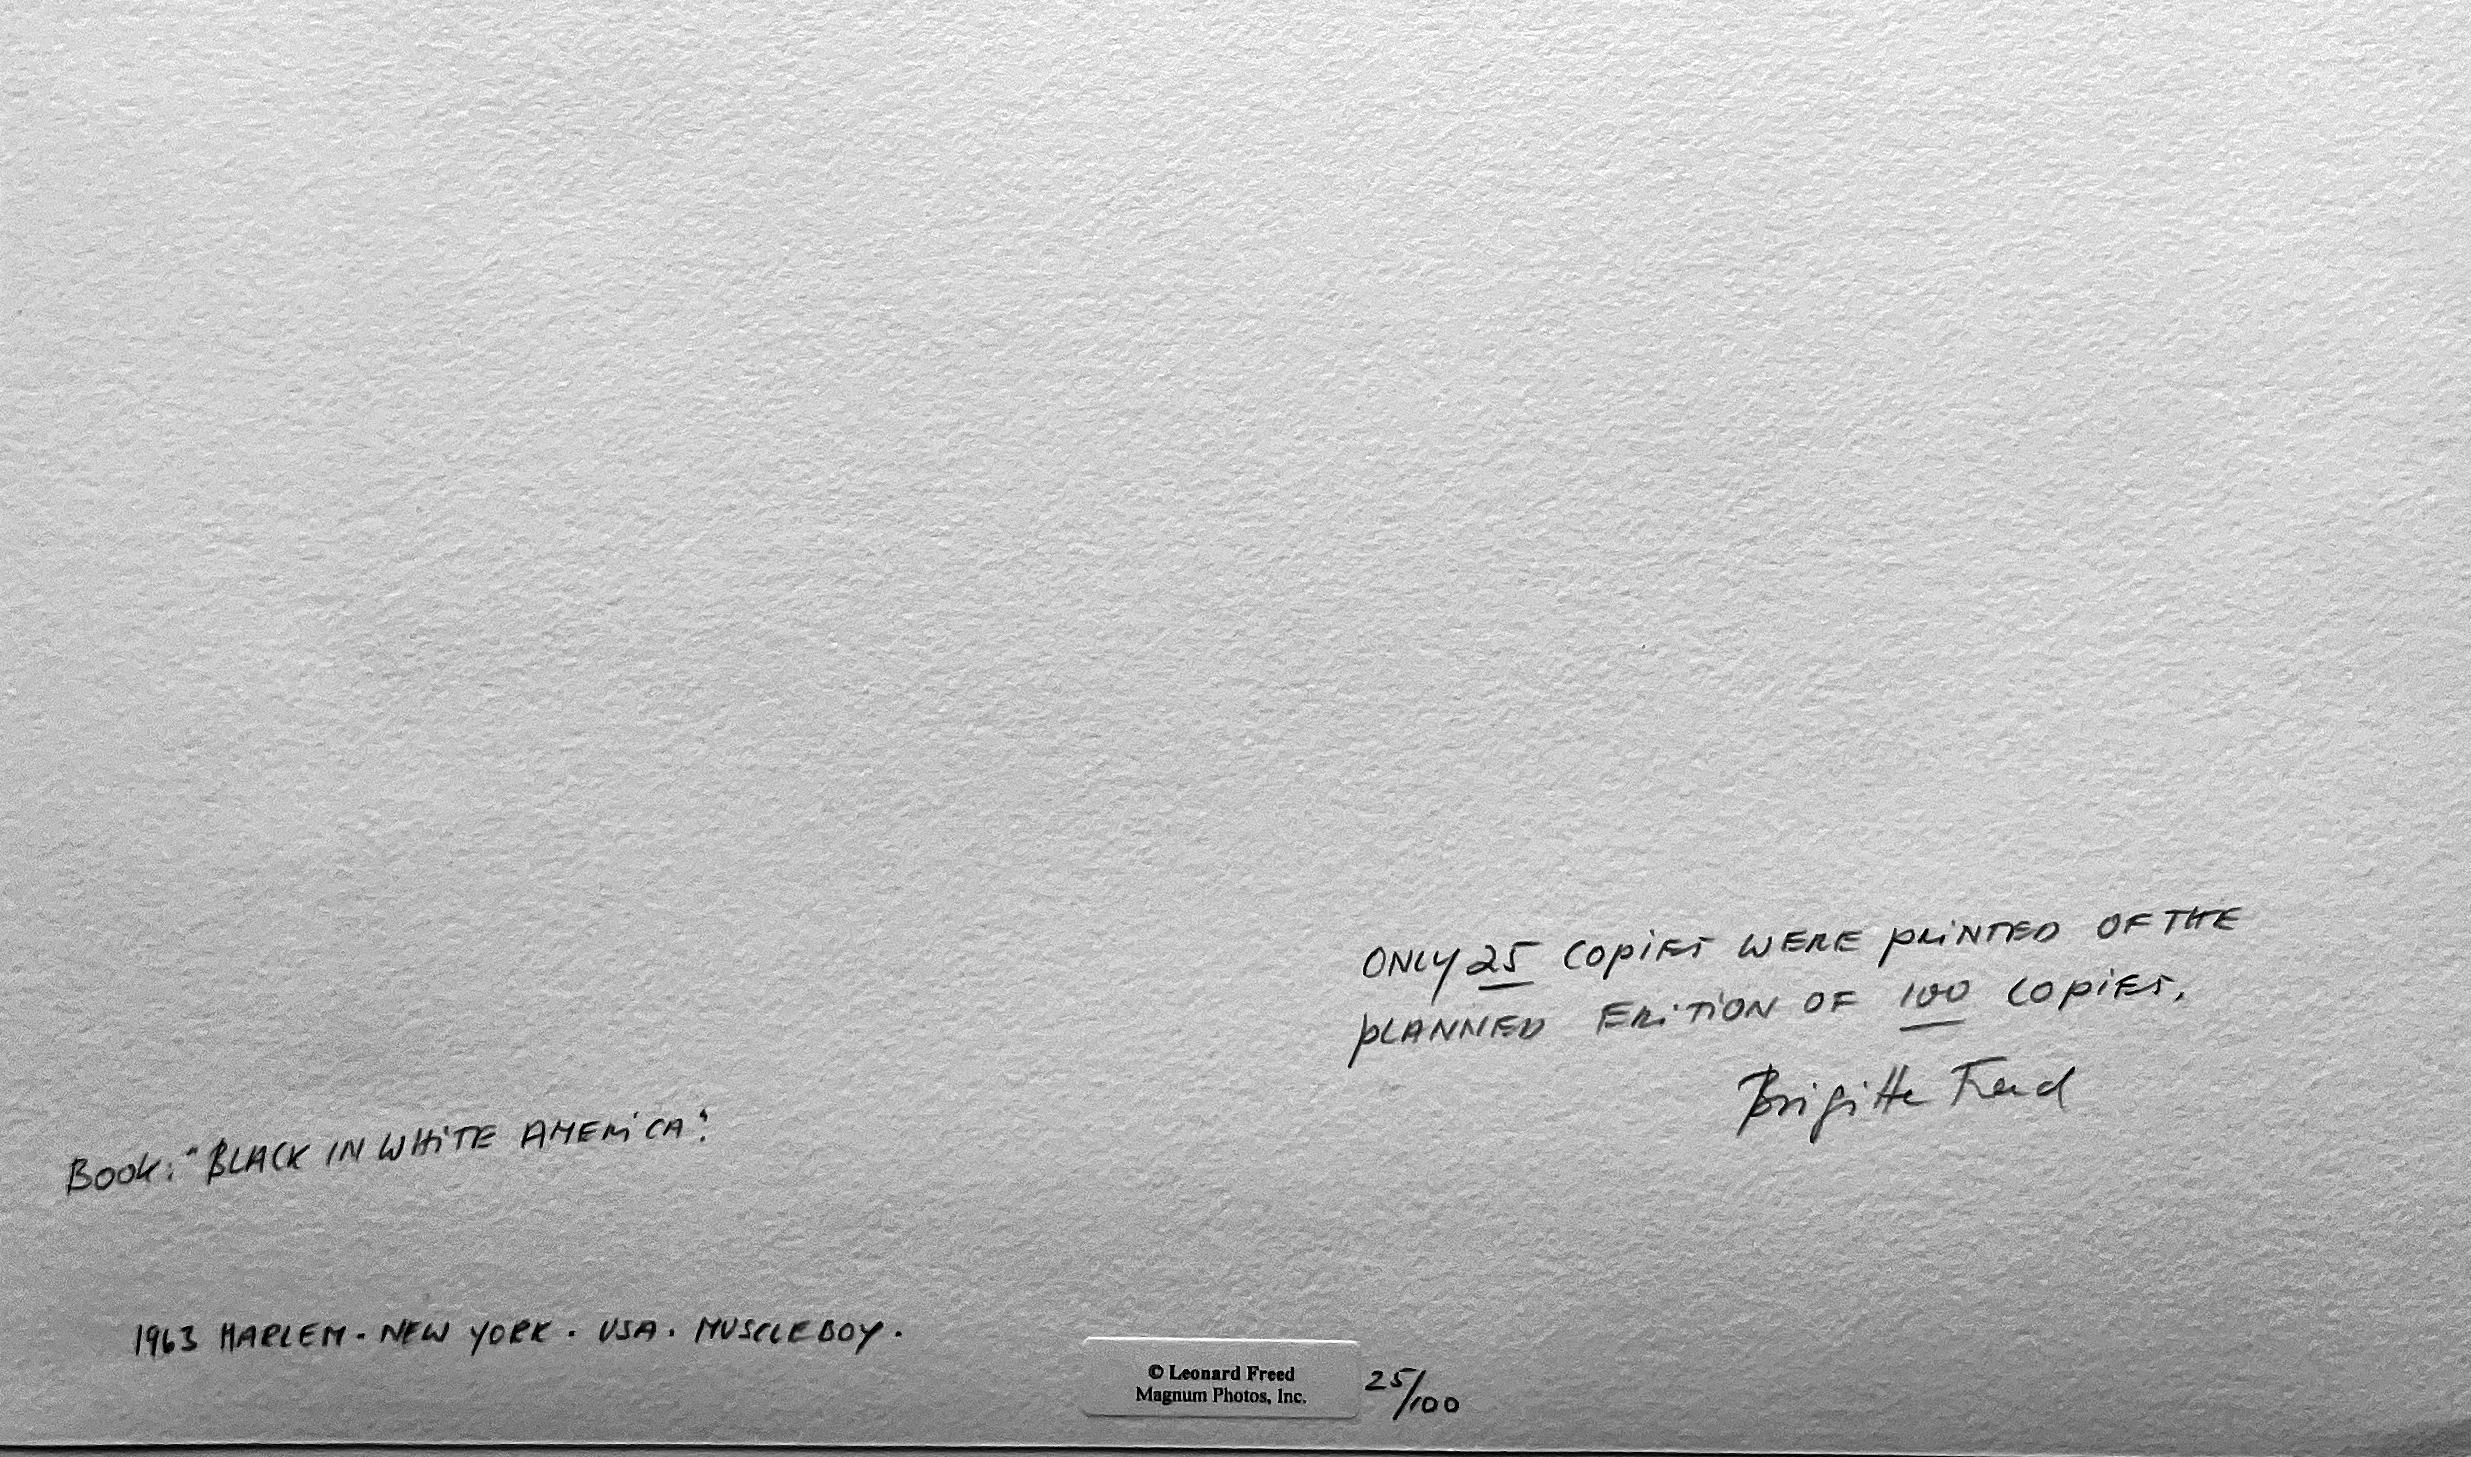 ONLY 25 COPIES WERE PRINTED OF THE
PLANNED EDITION OF 100 COPIES.
Brigitte Freed
BOOK: "BLACK IN WHITE AMERICA".
1963 HARLEM. NEW YORK. USA. MUSCLEBOY.
© Leonard Freed
Magnum Photos, Inc.
25/100